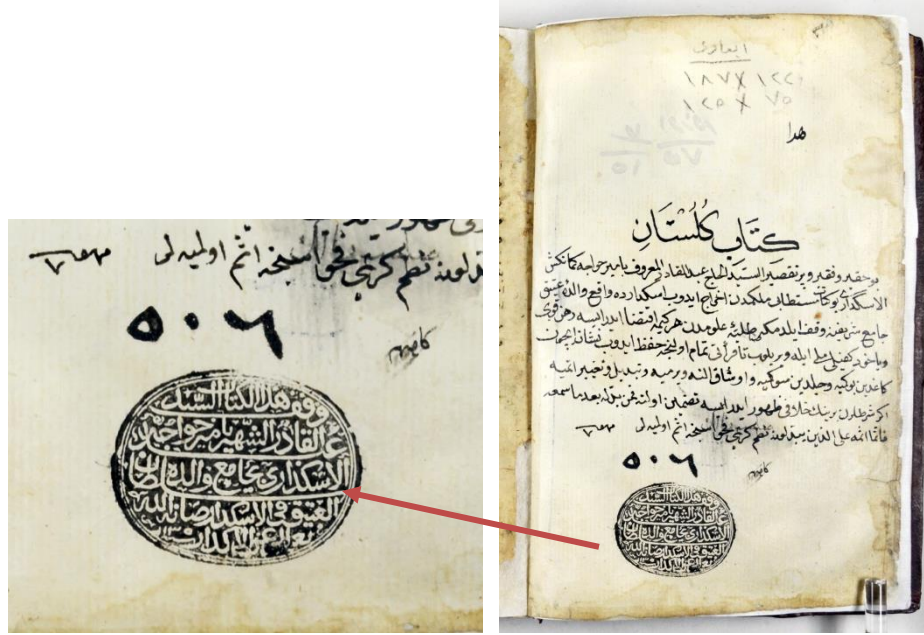 ١٢٢ X ١٨٧
٧٥ X ١٢٥
هدا
كتاب كلستان
بو حقير و فقير و پر تقصير السيد الحاج عبدالقادر المعروف بامير خواجه كمانكش
الاسكدارى بو كتاب مستطابى ملكمدن اخراج ايدوب اسكدارده واقع والده عتيق
جامع شريفنه وقف ايلدم كه طلبۀ علومدن هر كيم اقتضا ايدرايسه رهن قوى
وياخود كفيل ملى ايله ويريلوب تا قرائى تمام اولنجه حفظ ايدوب نشانه ايچون
كاغدين بوكميه وجلدين سوكميه و اوشاق النه ويرميه و تبديل و تغيير ايتميه
اكر شرطلردن برينك خلافى ظهور ايدر ايسه تضمين اولنه فمن بدله بعد ما سمعه
فانما اثمه على الذين يبدلونه نظم فحواسنجه آثم اوليه لر
٥٠٦
وقف هذا الكتاب السيد
عبد القادر الشهير بامير خواجه
الاسكداري بجامع والده سلطان
العتيق في الاسكدار صانه الله
تعالى عن الاكدار
يبدلونه نظم فحواسنجه آثم اوليه لر
٥٠٦
وقف هذا الكتاب السيد
عبد القادر الشهير بامير خواجه
الاسكداري بجامع والده سلطان
العتيق في الاسكدار صانه الله
تعالى عن الاكدار